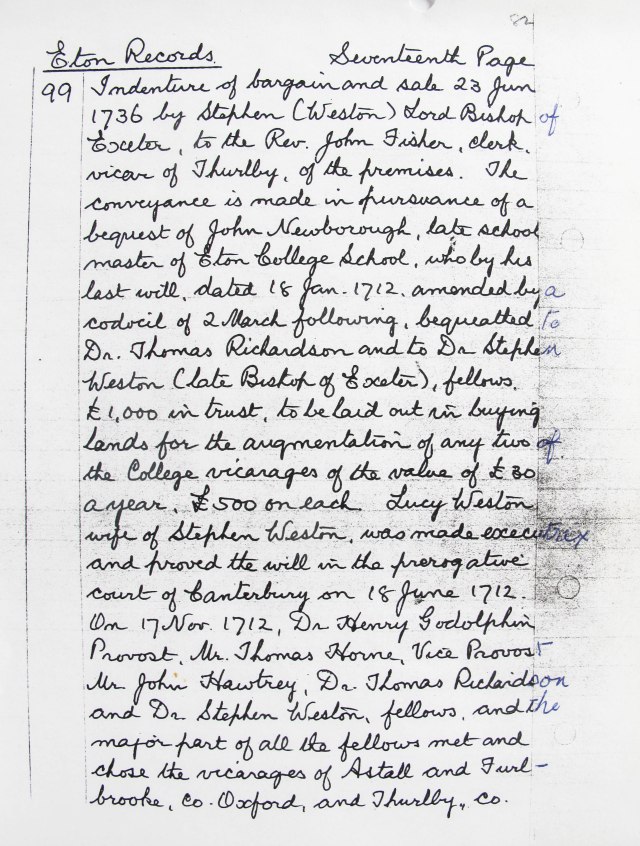 82
Eton Records. Seventeenth Page
99 Indenture of bargain and sale 23 Jun
1736 by Stephen (Weston) Lord Bishop of
Exeter, to the Rev. John Fisher, clerk,
vicar of Thurlby, of the premises. The
conveyance is made in pursuance of a
bequest of John Newborough, late school
master of Eton College School, who by his
last will, dated 18 Jan. 1712, amended by a
codocil of 2 March following, bequeatted to
Dr. Thomas Richardson and to Dr Stephen
Weston (late Bishop of Exeter), fellows,
£1,000 in trust, to be laid out in buying
lands for the augmentation of any two of
the College vicarages of the value of £30
a year, £500 on each Lucy Weston
wife of Stephen Weston, was made executrix
and proved the will in the prerogative
court of Canterbury on 18 June 1712.
On 17 Nov. 1712, Dr Henry Godolphin
Provost, Mr. Thomas Horne, Vice Provost
Mr John Hawtrey, Dr. Thomas Richardson
and Dr Stephen Weston, fellows, and the
major part of all the fellows met and
chose the vicarages of Astall and Furl-
brooke, co. Oxford, and Thurlby, co.